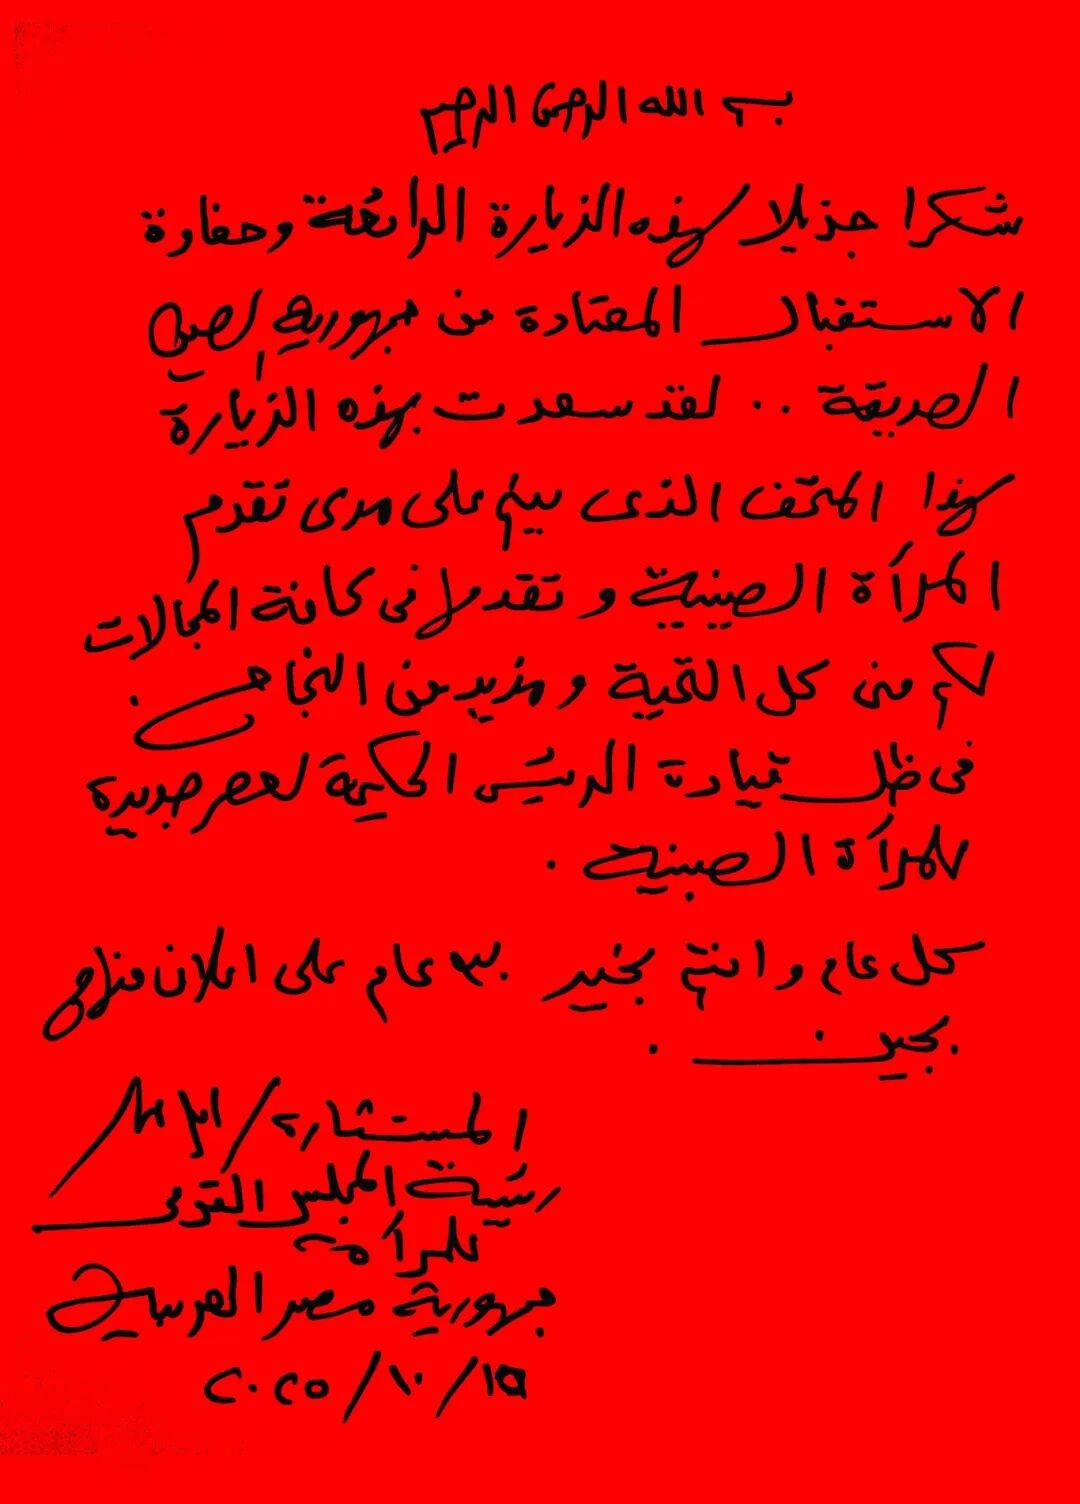 بسم الله الرحمن الرحيم
شكرا جزيلا لهذه الزيارة الرائعة وحفاوة
الاستقبال المعتادة من جمهورية الصين
الصديقة .. لقد سعدت بهذه الزيارة
لهذا المتحف الذى ينم على مدى تقدم
المرأة الصينية وتقدمها فى كافة المجالات
لكم منى كل التحية ومزيد من النجاح
فى ظل قيادة الرئيس الحكيمة لعصر جديدة
للمرأة الصينية .
كل عام وانتم بخير ٣٠ عام على اعلان منهاج
بجين .
المستشارة / امل
رئيسة المجلس القومى
للمرأة
جمهورية مصر العربية
١٥/١٠/٢٠٢٥